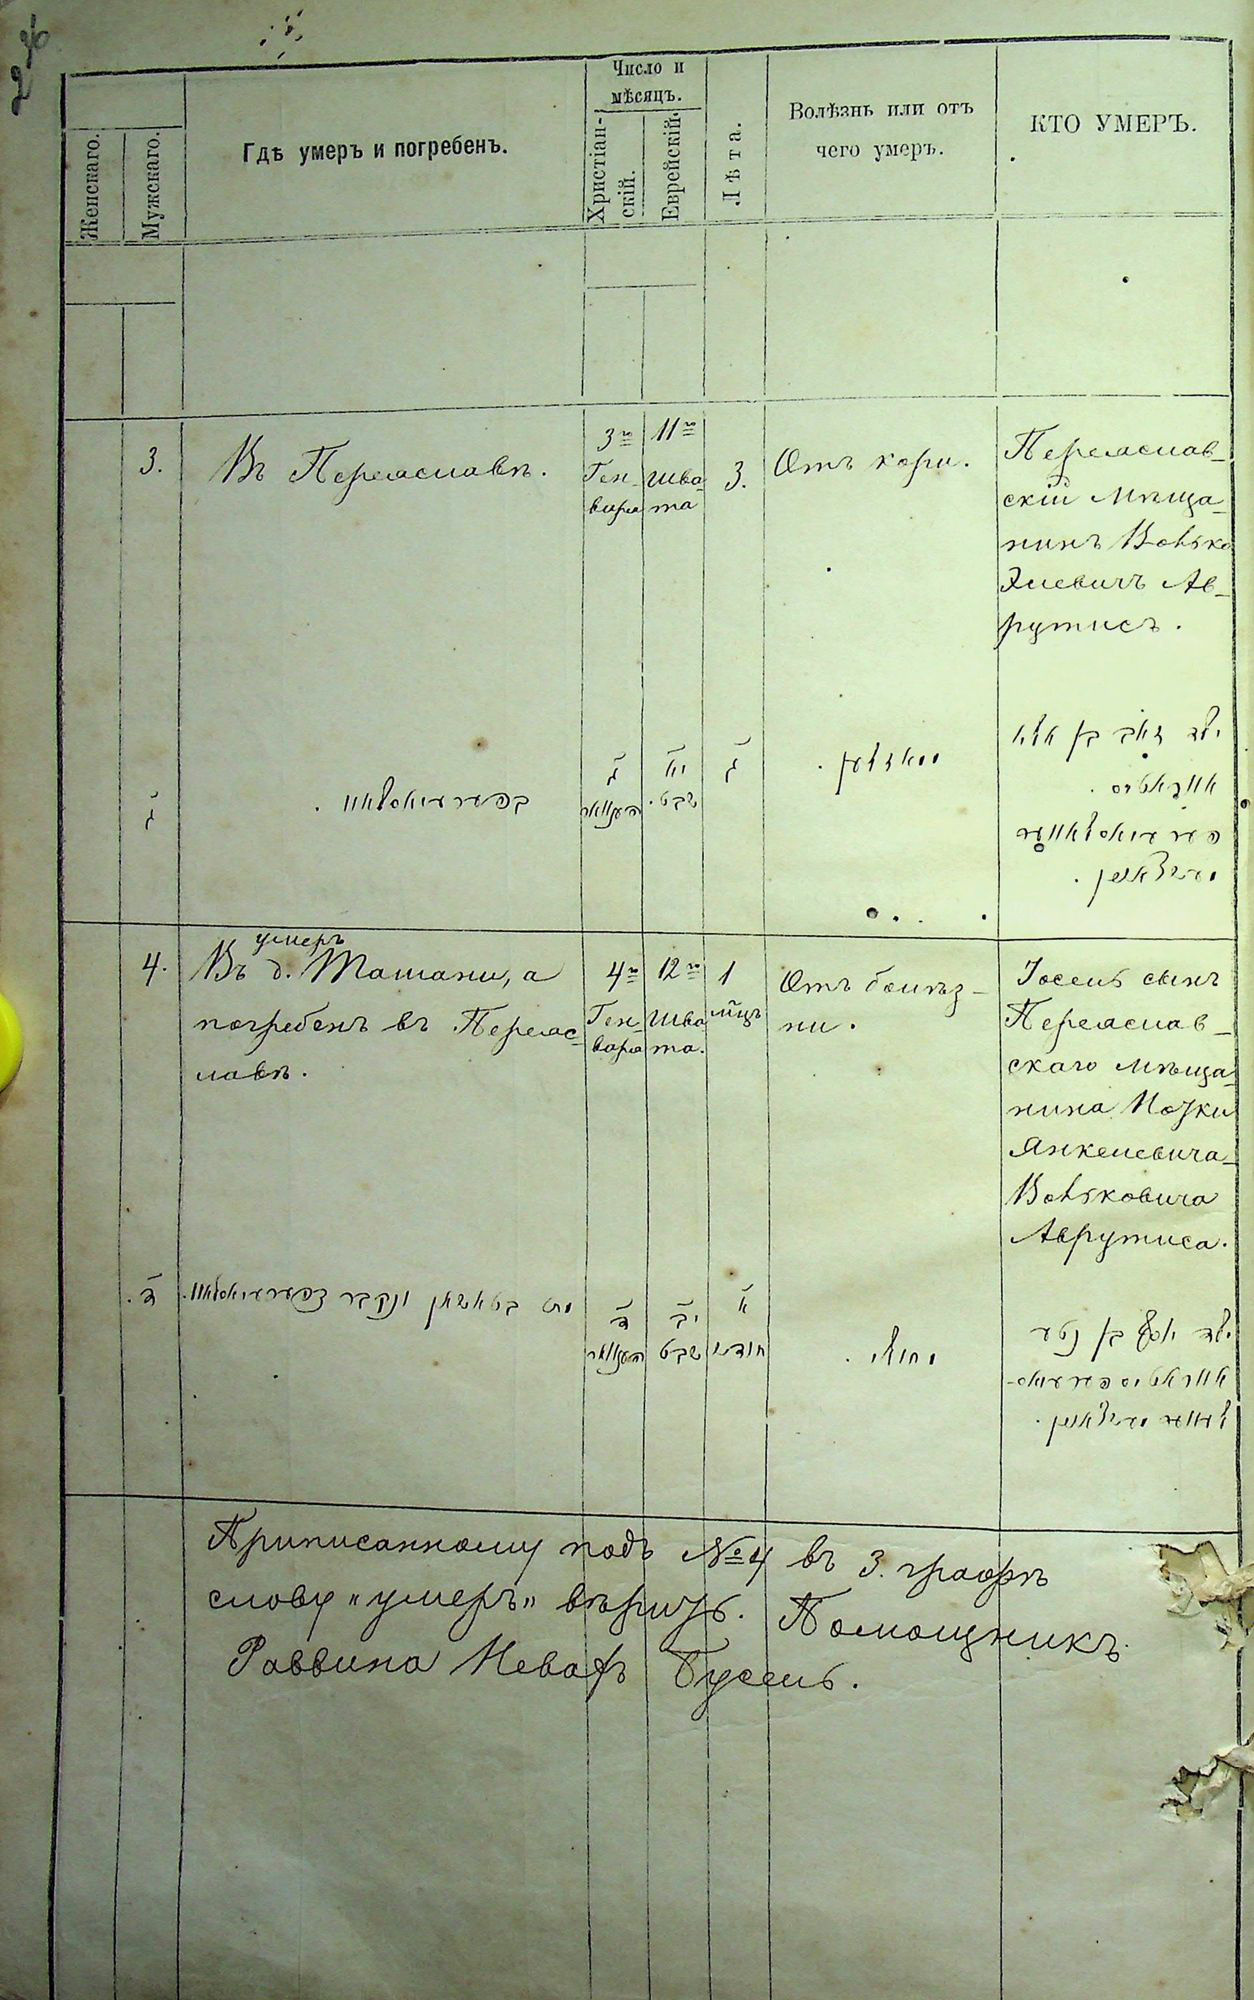 Женскаго.
Мужскаго.
Гдѣ умеръ и погребенъ.
Число и
мѣсяцъ.
Христіан-
скій.
Еврейскій.
Лѣта.
Болѣзнь или отъ
чего умеръ.
КТО УМЕРЪ.
3.
Въ Переяславѣ.
3го
Ген-
варя
11го
Шва-
та
3.
Отъ кори.
Переяслав-
скій мѣща-
нинъ Волько
Элевичъ Ав-
рутисъ.
ג
ג
יא
שבט.
ג
ילד זאב בן
4.
умеръ
Въ д. Ташани, а
погребенъ въ Переяс-
лавѣ.
4го
Ген-
варя
12го
Шва
та.
1
м-цъ
Отъ болѣз-
ни.
Іосель сынъ
Переяслав-
скаго мѣща-
нина
Янкелевича-
Вольковича
Аврутиса.
ד
ונקבר
ד
יב
שבט
א
חודש
ילד יוסף בן
Приписанному подъ №4 въ 3. графѣ
слову "умеръ" вѣрить. Помощникъ
Раввина Невахъ Бусель.